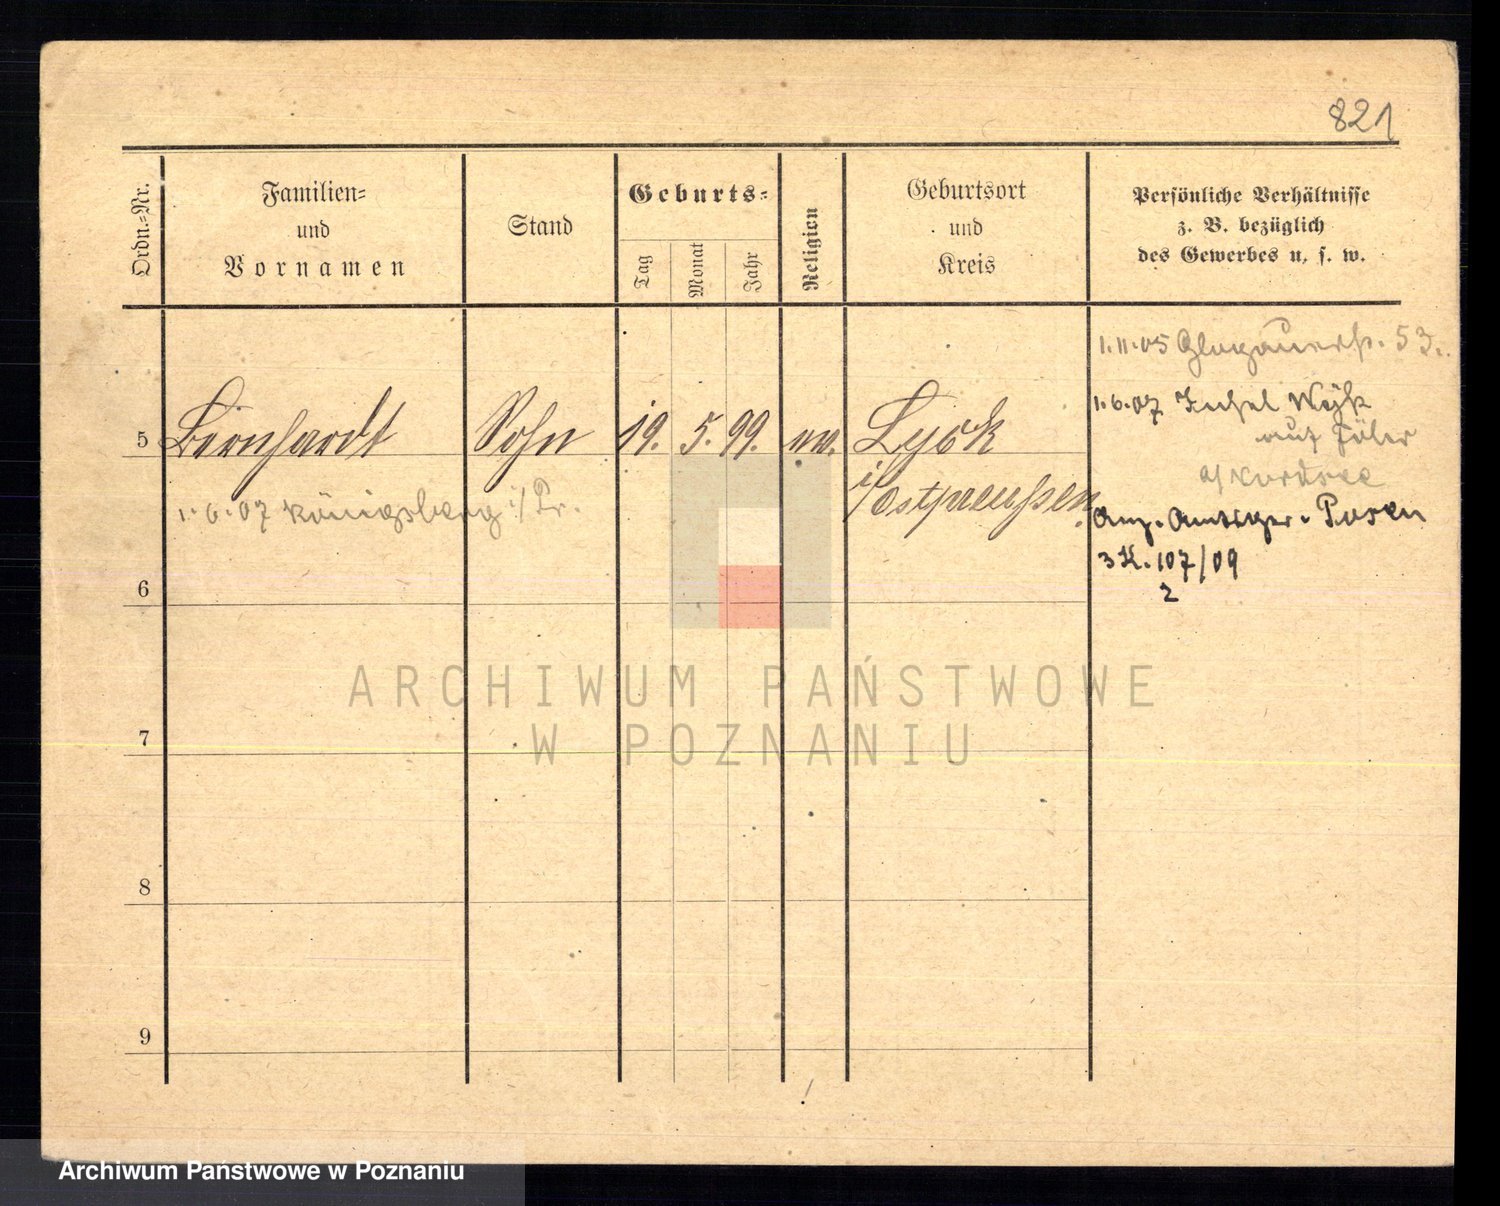 821
Ordn.=Nr.
Familien=
und
Vornamen
Stand
Geburts=
Tag
Monat
Jahr
Religion
Geburtsort
und
Kreis
Persönliche Verhältnisse
z. B. bezüglich
des Gewerbes u. s. w.
1.11.05 Glogauerstr. 53
5 Bernhardt Sohn 19. 5. 99. ev. Lyck
i/Ostpreussen
1.6.07 Königsberg i/Pr.
1.6.07 Insel Wyk
auf Föhr
a/Nordsee
Anz. Amtsger. Posen
3 K. 107/09
2
6
7
8
9
ARCHIWUM PAŃSTWOWE
W POZNANIU
Archiwum Państwowe w Poznaniu